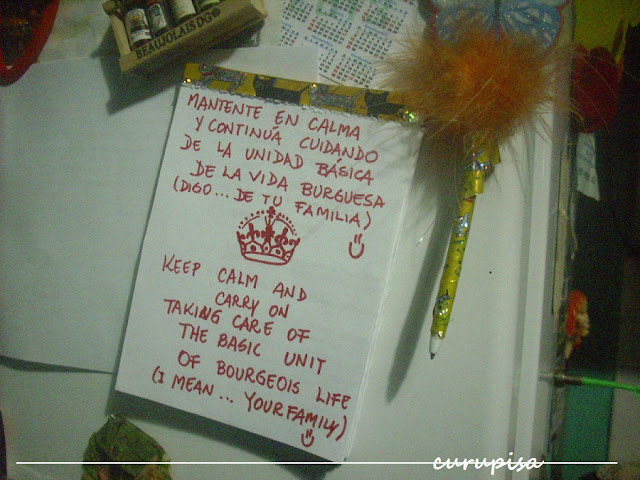 BEAUJOLAIS DGO
MANTENTE EN CALMA
Y CONTINUÁ CUIDANDO
DE LA UNIDAD BÁSICA
DE LA VIDA BURGUESA
(DIGO... DE TU FAMILIA)
KEEP CALM AND
CARRY ON
TAKING CARE OF
THE BASIC UNIT
OF BOURGEOIS LIFE
(I MEAN... YOUR FAMILY)
curupisa